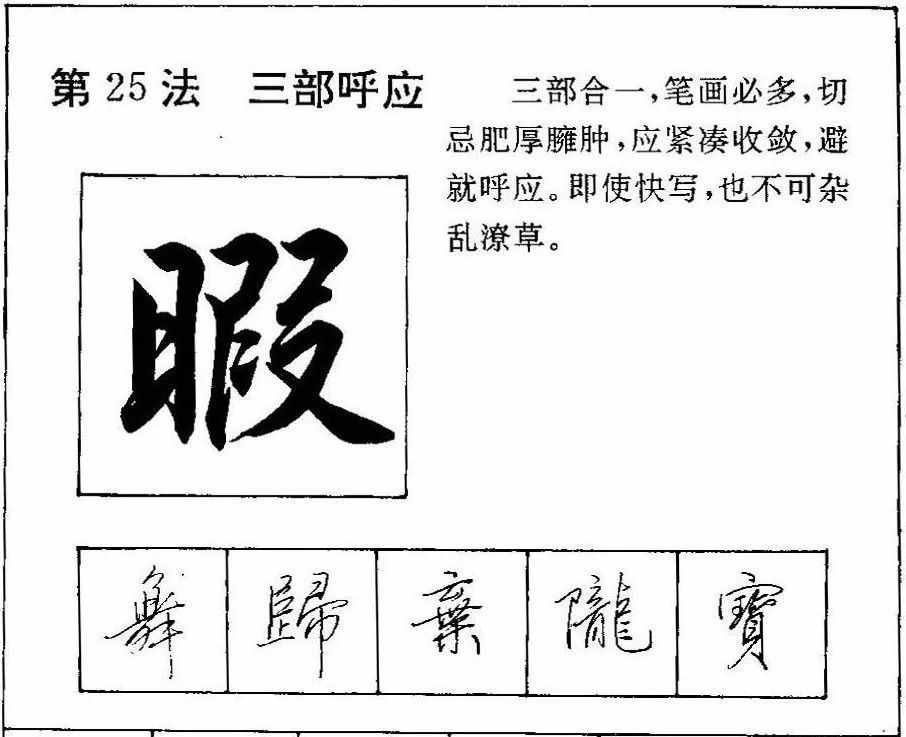 第25法 三部呼应
三部合一,笔画必多,切
忌肥厚臃肿,应紧凑收敛,避
就呼应。即使快写,也不可杂
乱潦草。
暇
舞 歸 棄 隴 寶